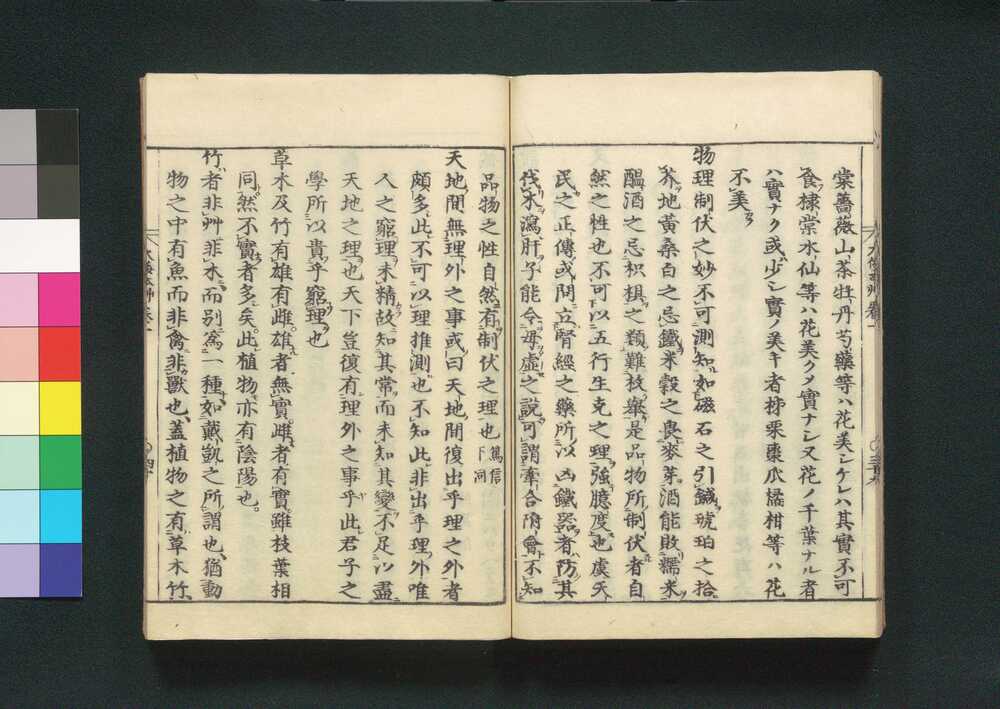 棠薔薇山茶牡丹芍藥等ハ花美シケレハ其實不可
食棣棠水仙等ハ花美クメ實ナシ又花ノ千葉ナル者
ハ實ナク或少シ實ノ美キ者柹栗棗瓜橘柑等ハ花
不美
物理制伏之妙不可測知如磁石之引鍼琥珀之拾
芥地黃桑白之忌鐵米穀之畏麥芽酒能敗糯米
醞酒之忌枳椇之類難枚舉是品物所制伏者自
然之性也不可以五行生克之理強臆度也虞天
民之正傳或問立腎經之藥所以凶鐵器者防其
伐木瀉肝子能令母虛之說可謂牽合附會不知
品物之性自然有制伏之理也 篤信
下同
天地間無理外之事或曰天地間復出乎理之外者
頗多此不可以理推測也不知此非出乎理外唯
人之窮理未精故知其常而未知其變不足以盡
天地之理也天下豈復有理外之事乎此君子之
學所以貴乎窮理也
草木及竹有雄有雌雄者無實雌者有實雖枝葉相
同然不實者多矣此植物亦有陰陽也
竹者非艸非木而別爲一種如戴凱之所謂也猶動
物之中有魚而非禽非獸也蓋植物之有草木竹